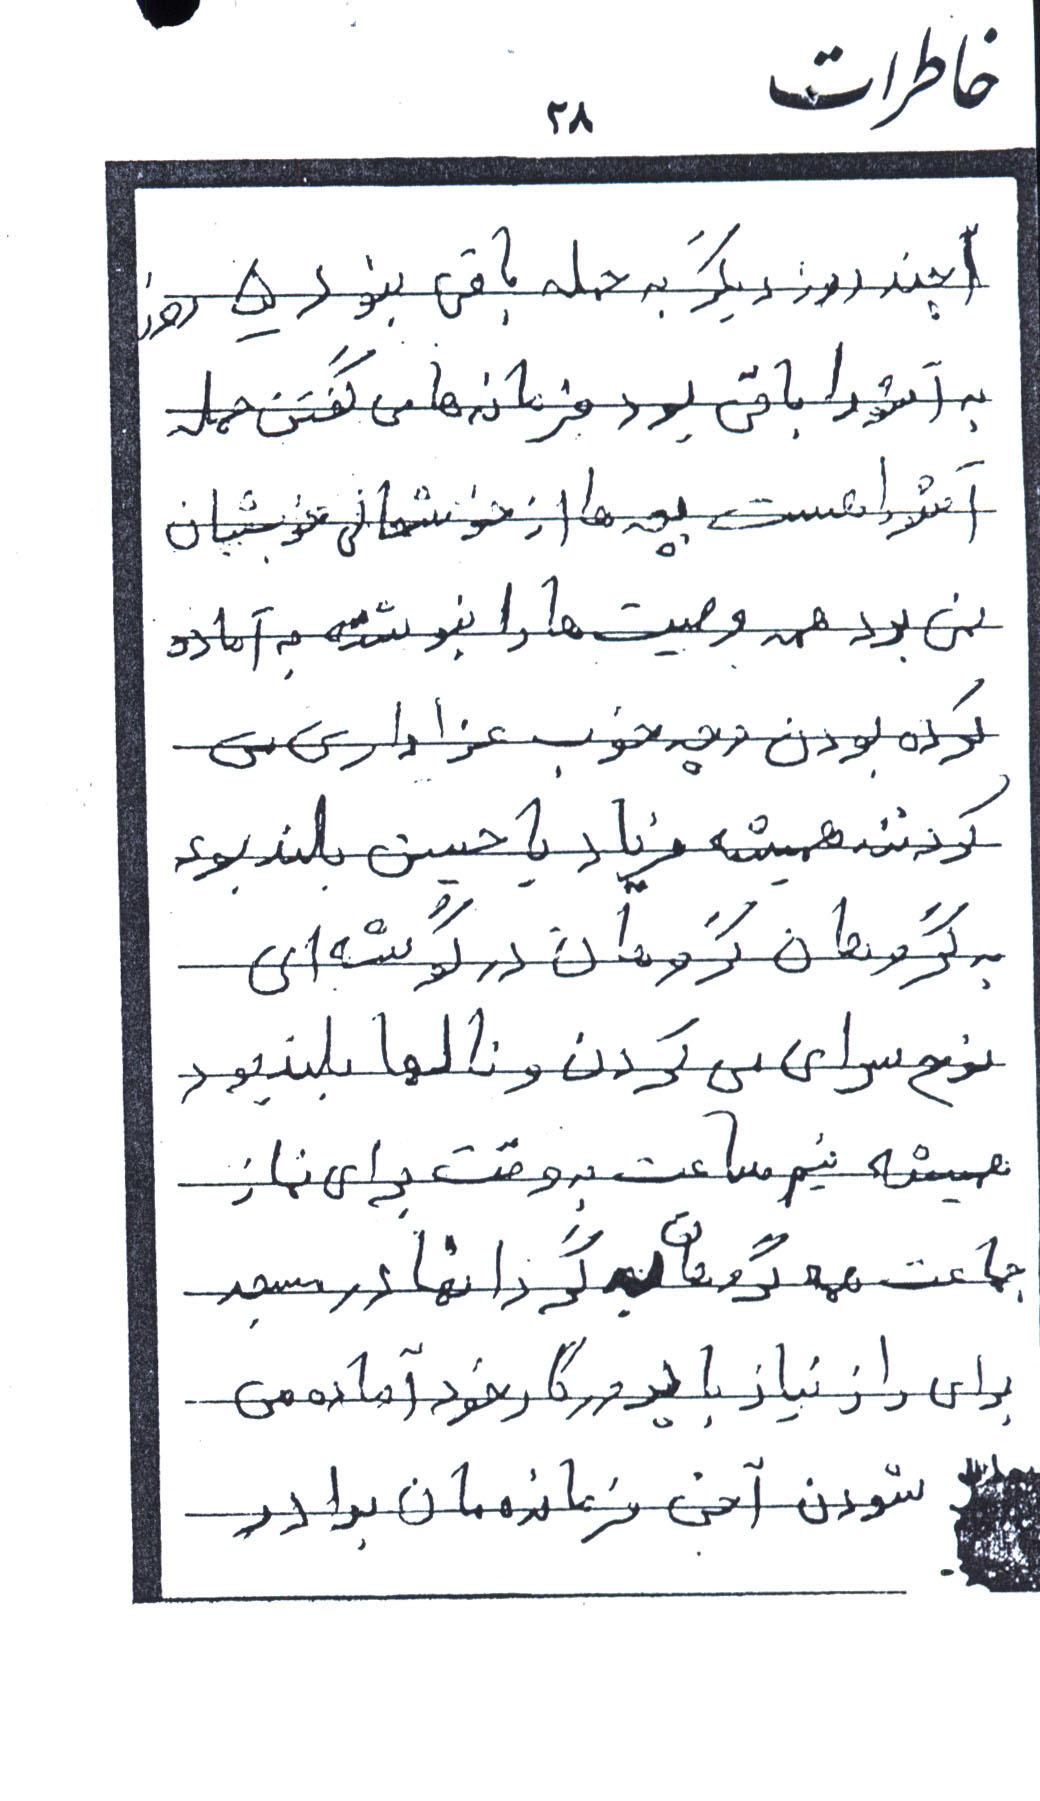 خاطرات
۲۸
چند روز دیگر به حمله باقی بنود ۵ روز
به آشورا باقی بود فرمانه ها می گفتن حمله
آشورا هست بچه ها از خوشهالی خوبشیان
نمی بود همه وصیت ها را نوشته به آماده
کرده بودن وچه خوب عزاداری می
کردند همیشه فریاد یا حسین بلند بود
به گروهان گروهان در گوشه ای
نوح سرای می کردن و نالها بلند بود
همیشه نیم ساعت به وقت برای نماز
جماعت همه گروهان گردانها در مسجد
برای راز نیاز با پرورگار خود آماده می
شودن آخی فرمانده مان برادر